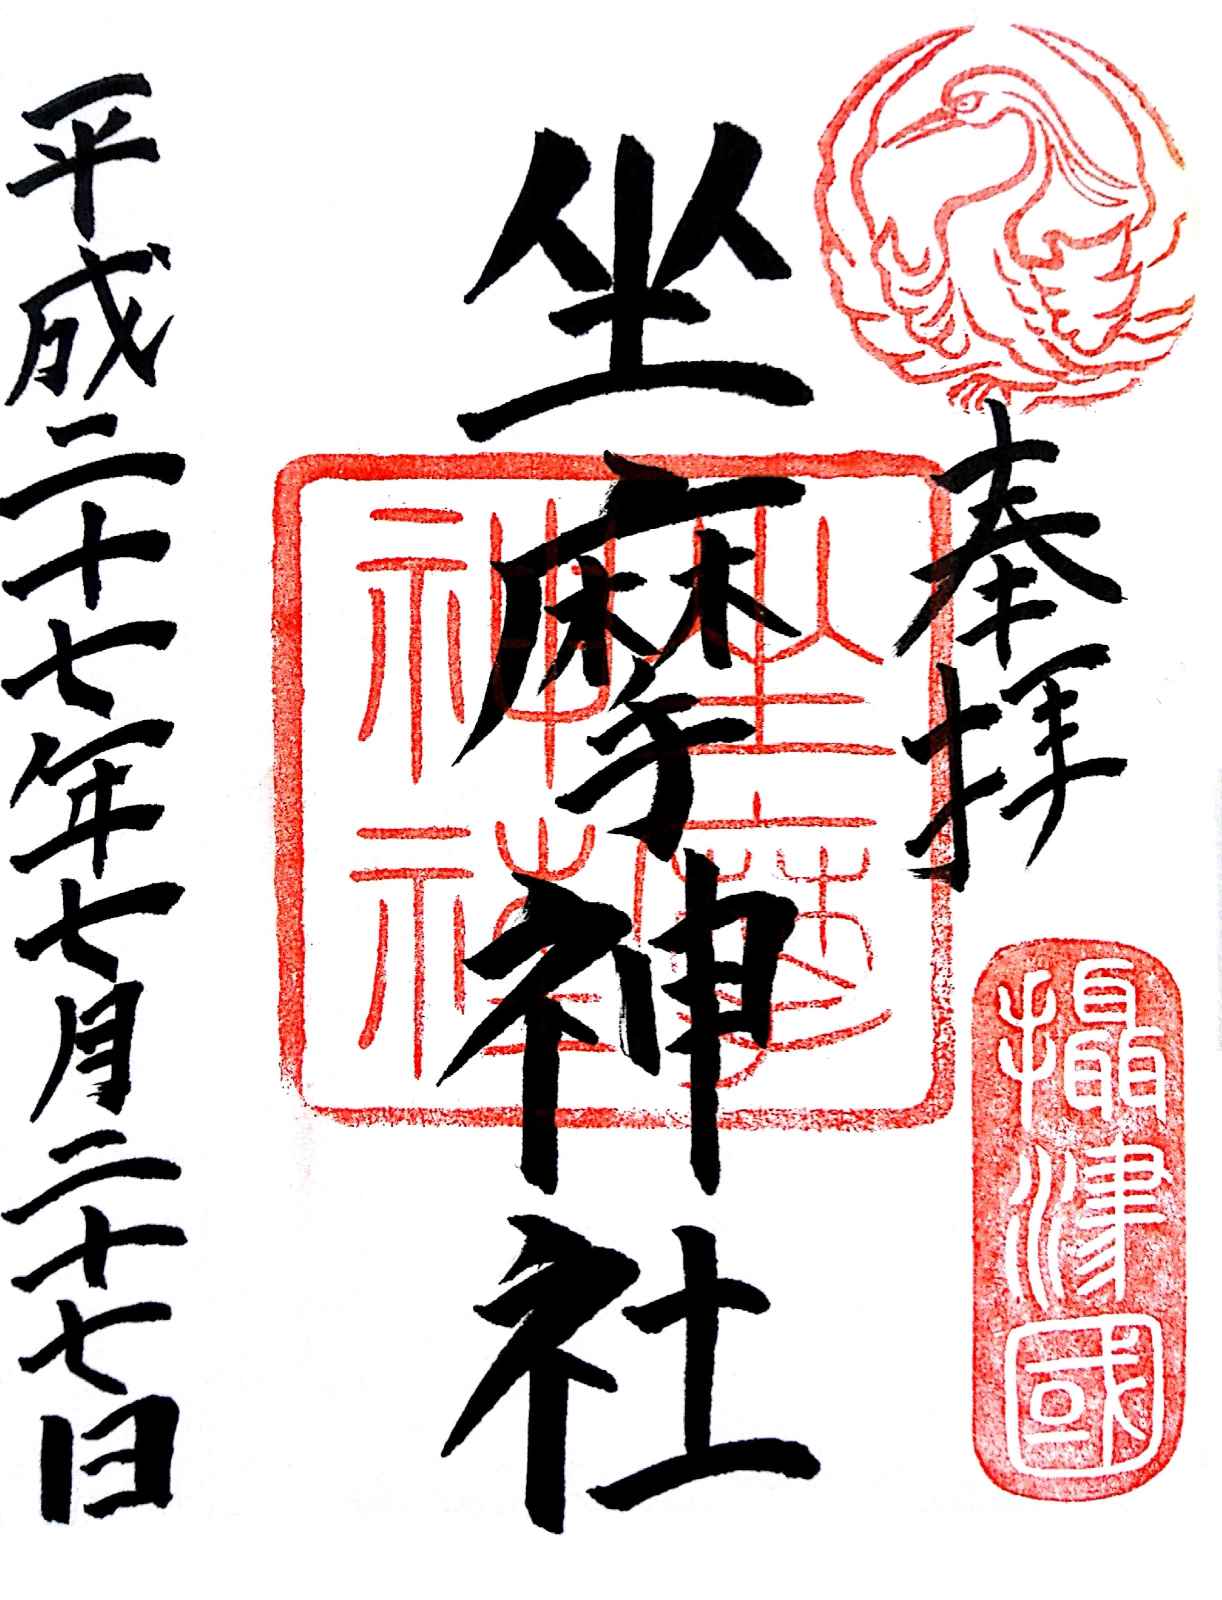 奉拝
攝津國
坐摩神社
坐摩
神社
平成二十七年七月二十七日